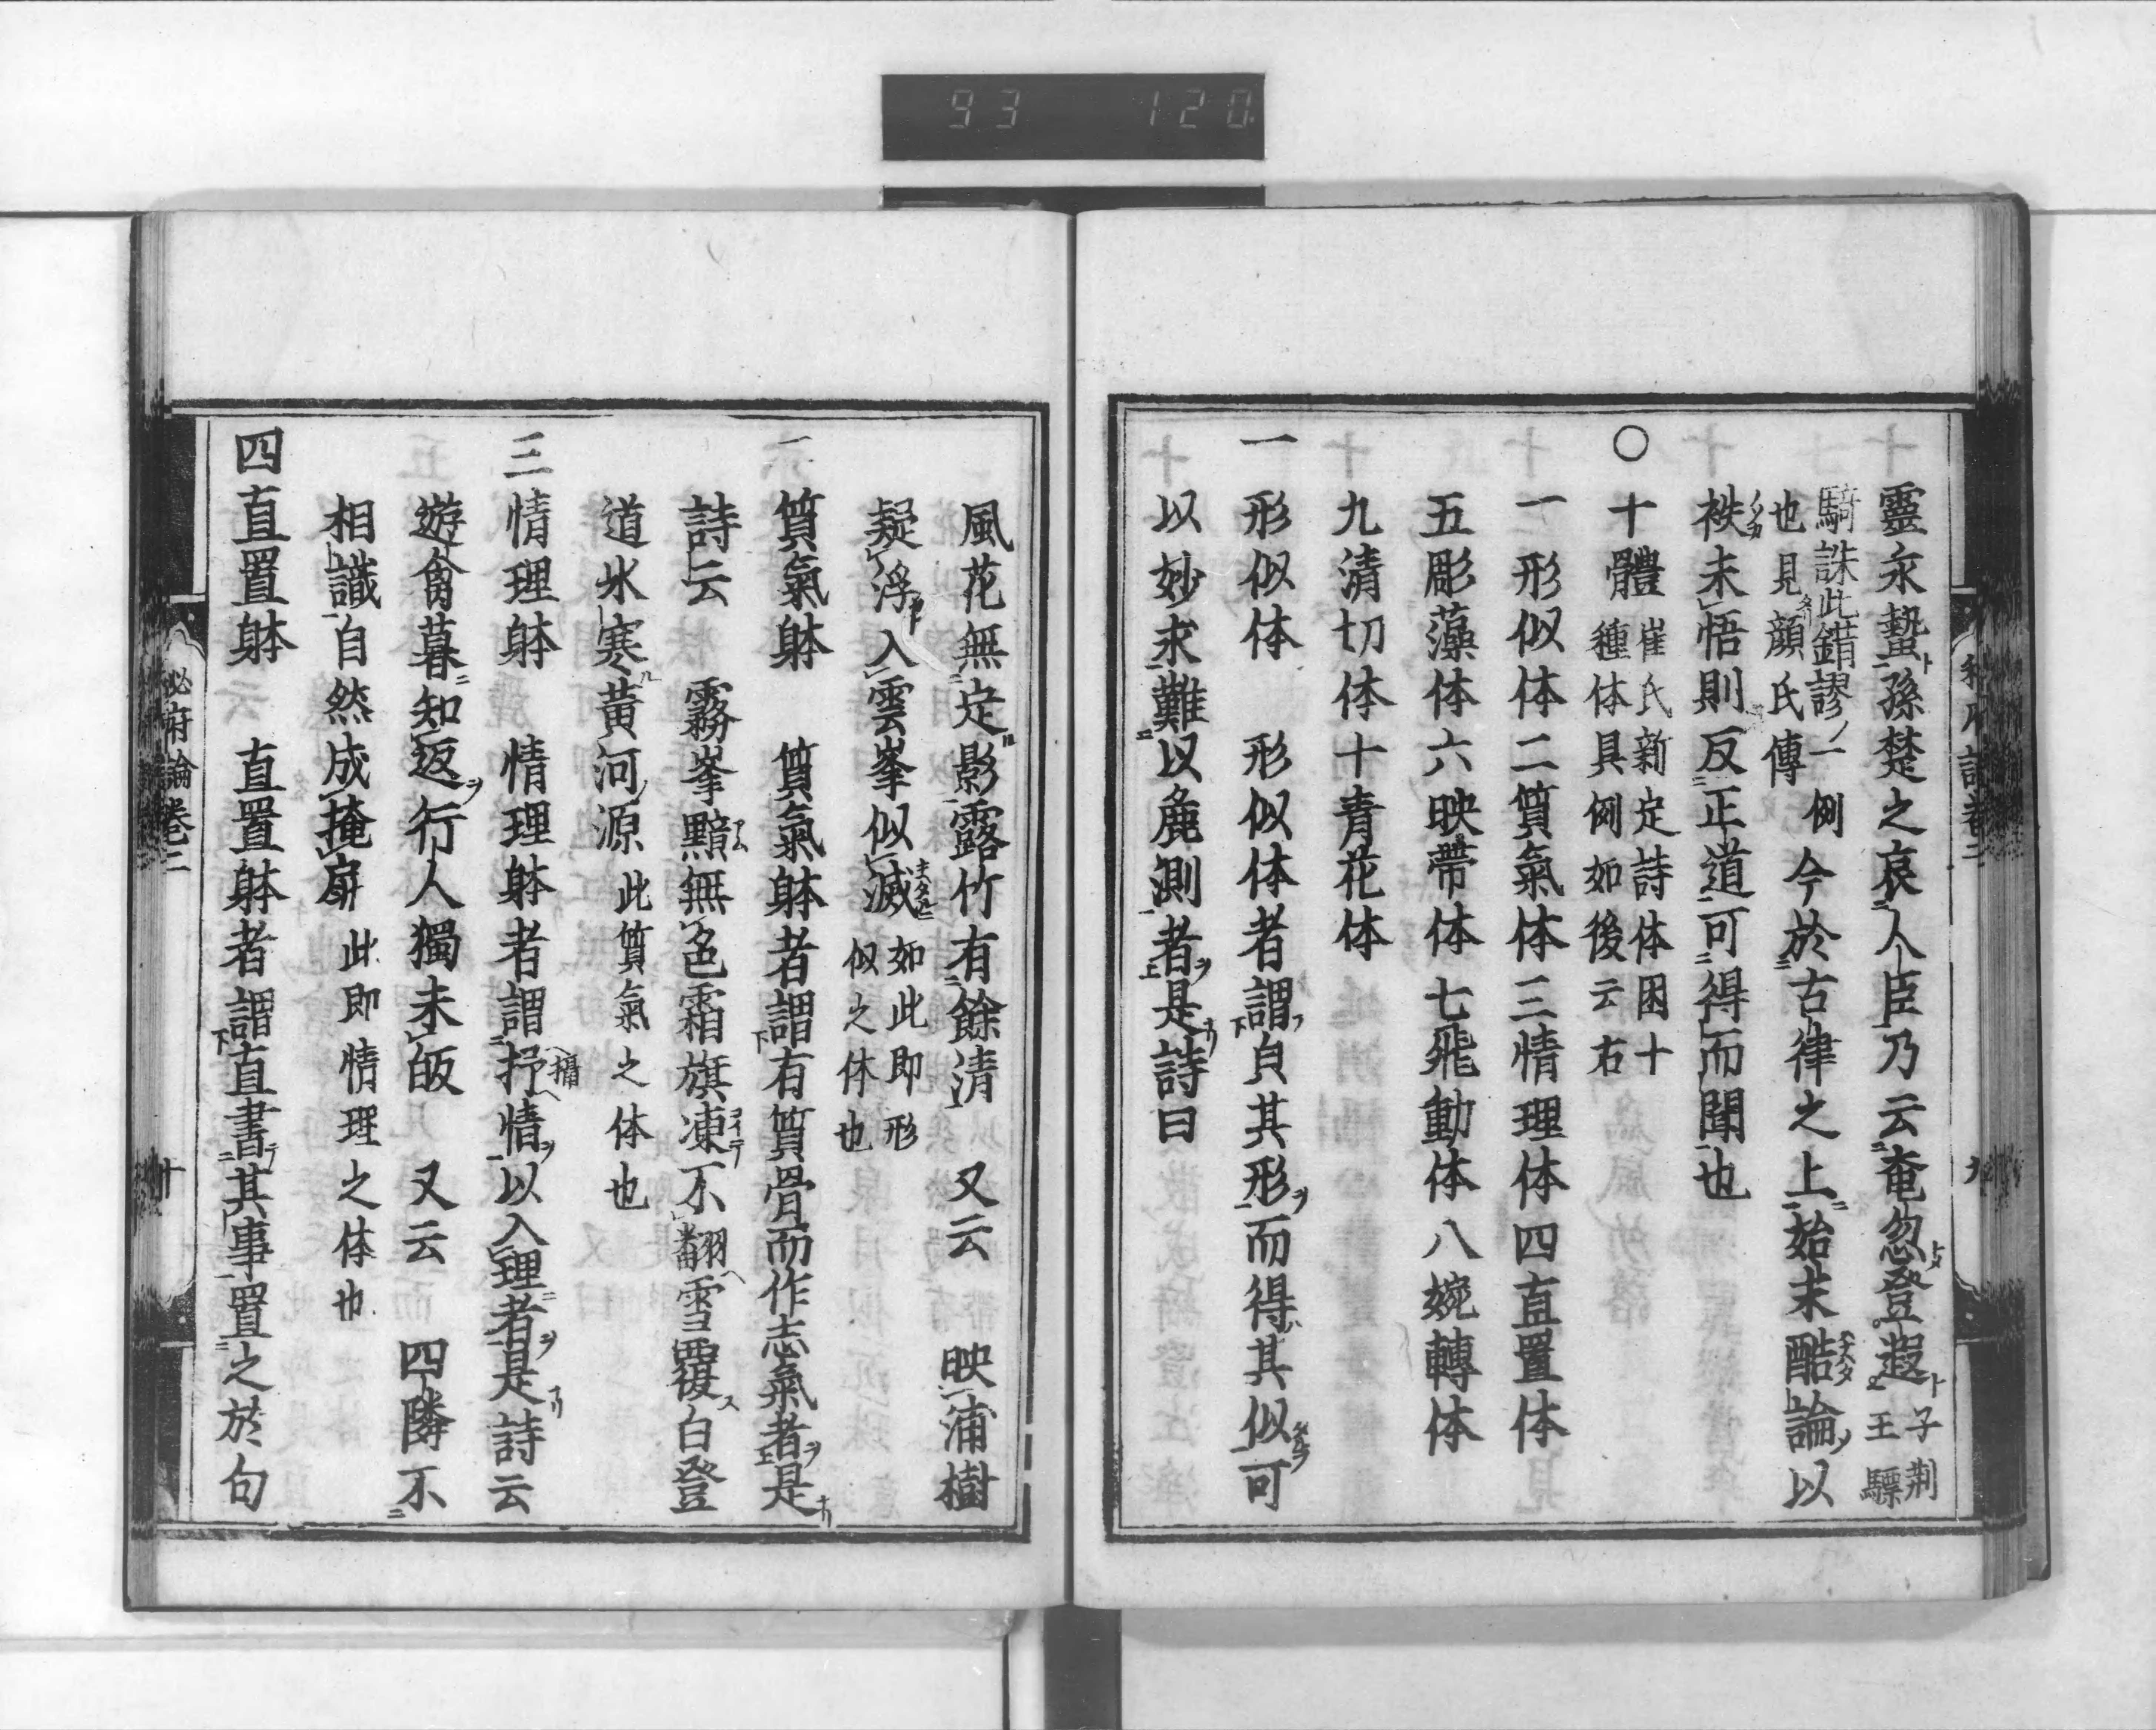 93 120
靈永蟄孫楚之哀人臣乃云奄忽登遐子荆王驃
騎誄此錯謬一例也見顔氏傳今於古律之上始末酷論以
袟未悟則反正道可得而聞也
〇十體崔氏新定詩体困十種体具例如後云右
一形似体二質氣体三情理体四直置体
五彫藻体六映帶体七飛動体八婉轉体
九清切体十青花体
一形似体 形似体者謂皃其形而得其似可
以妙求難以麁測者是詩曰
風花無定影露竹有餘清 又云 映浦樹
疑浮入雲峯似滅如此即形似之体也
質氣躰 質氣躰者謂有質骨而作志氣者是
詩云 霧峯黯無色霜旗凍不翻雪覆白登
道氷寒黃河源此質氣之体也
三情理躰 情理躰者謂抒情以入理者是詩云
遊禽暮知返行人獨未皈 又云 四隣不
相識自然成掩扉此即情理之体也
四直置躰 直置躰者謂直書其事置之於句
祕府論卷二 十